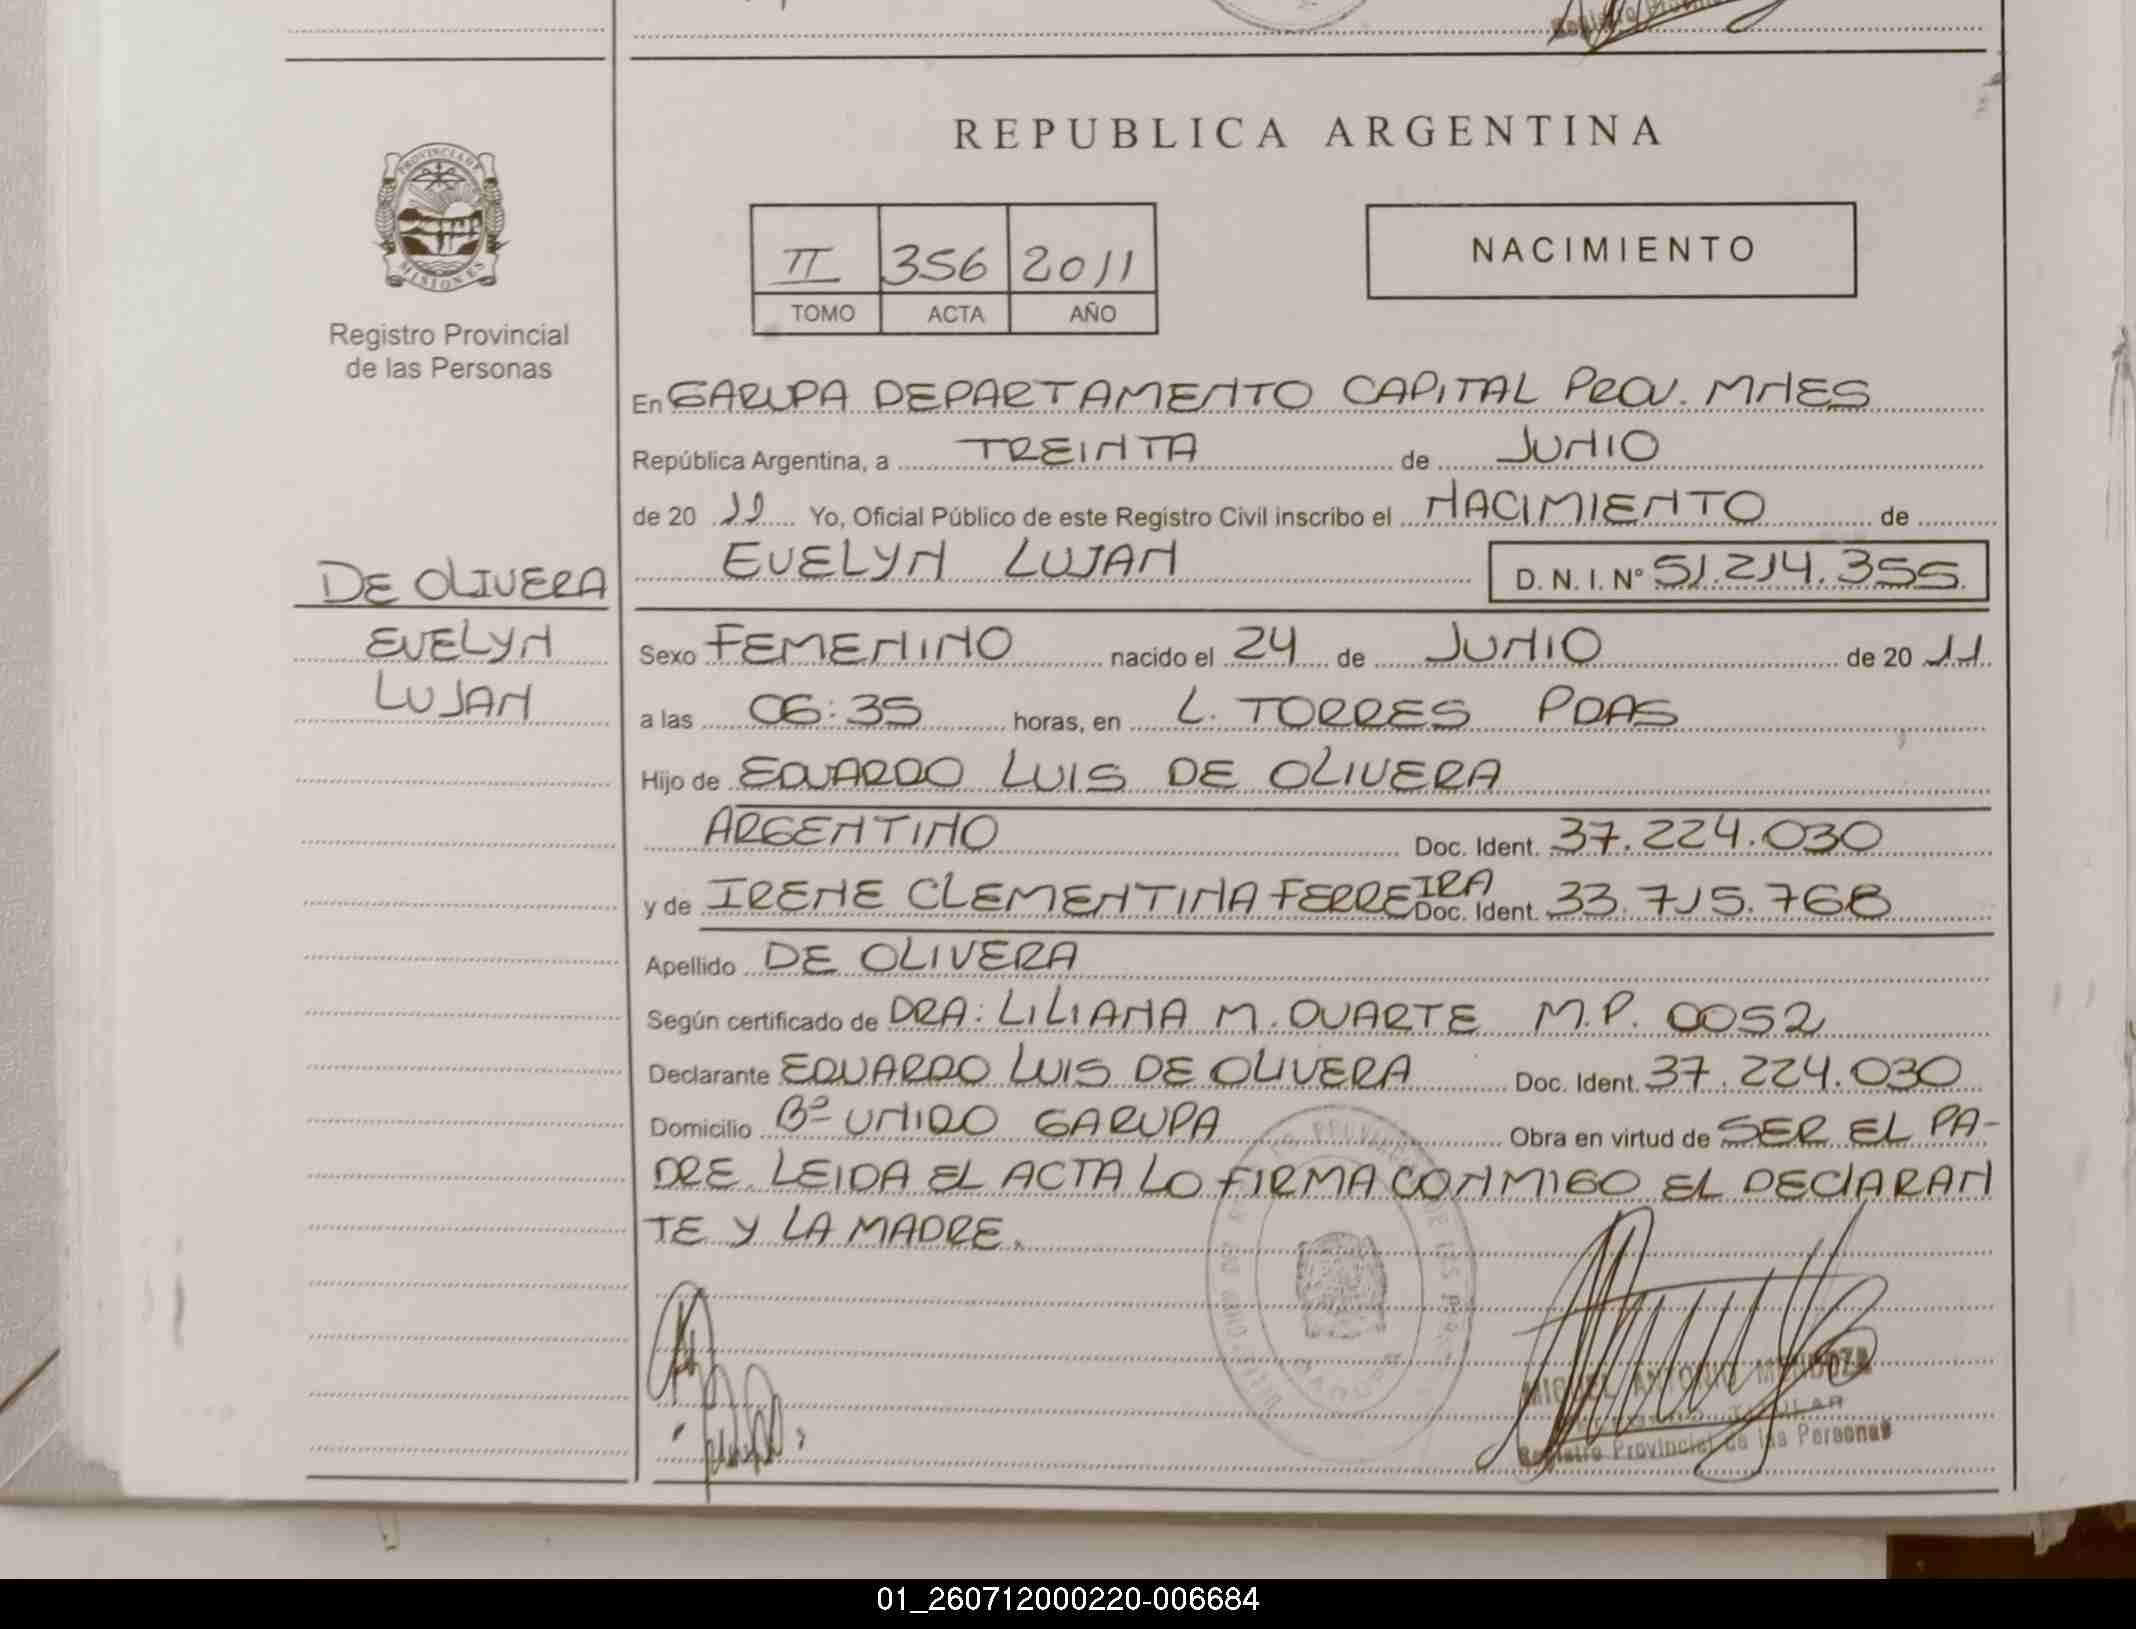 REPUBLICA ARGENTINA
PROVINCIA DE
MISIONES
Registro Provincial
de las Personas
II 356 2011
TOMO ACTA AÑO
NACIMIENTO
En GARUPA DEPARTAMENTO CAPITAL PROV. MNES
República Argentina, a TREINTA de JUNIO
de 20 11 Yo, Oficial Público de este Registro Civil inscribo el NACIMIENTO de
EVELYN LUJAN D. N. I. N° 51.214.355.
DE OLIVERA
EVELYN
LUJAN
Sexo FEMENINO nacido el 24 de JUNIO de 20 11
a las 06:35 horas, en L. TORRES PDAS
Hijo de EDUARDO LUIS DE OLIVERA
ARGENTINO Doc. Ident. 37.224.030
y de IRENE CLEMENTINA FERREIRA Doc. Ident. 33.715.768
Apellido DE OLIVERA
Según certificado de DRA: LILIANA M. DUARTE M.P. 0052
Declarante EDUARDO LUIS DE OLIVERA Doc. Ident. 37.224.030
Domicilio Bº UNIDO GARUPA Obra en virtud de SER EL PA-
DRE. LEIDA EL ACTA LO FIRMA CONMIGO EL DECLARAN
TE Y LA MADRE.
MIGUEL ANTONIO MENDOZA
TITULAR
Registro Provincial de las Personas
01_260712000220-006684